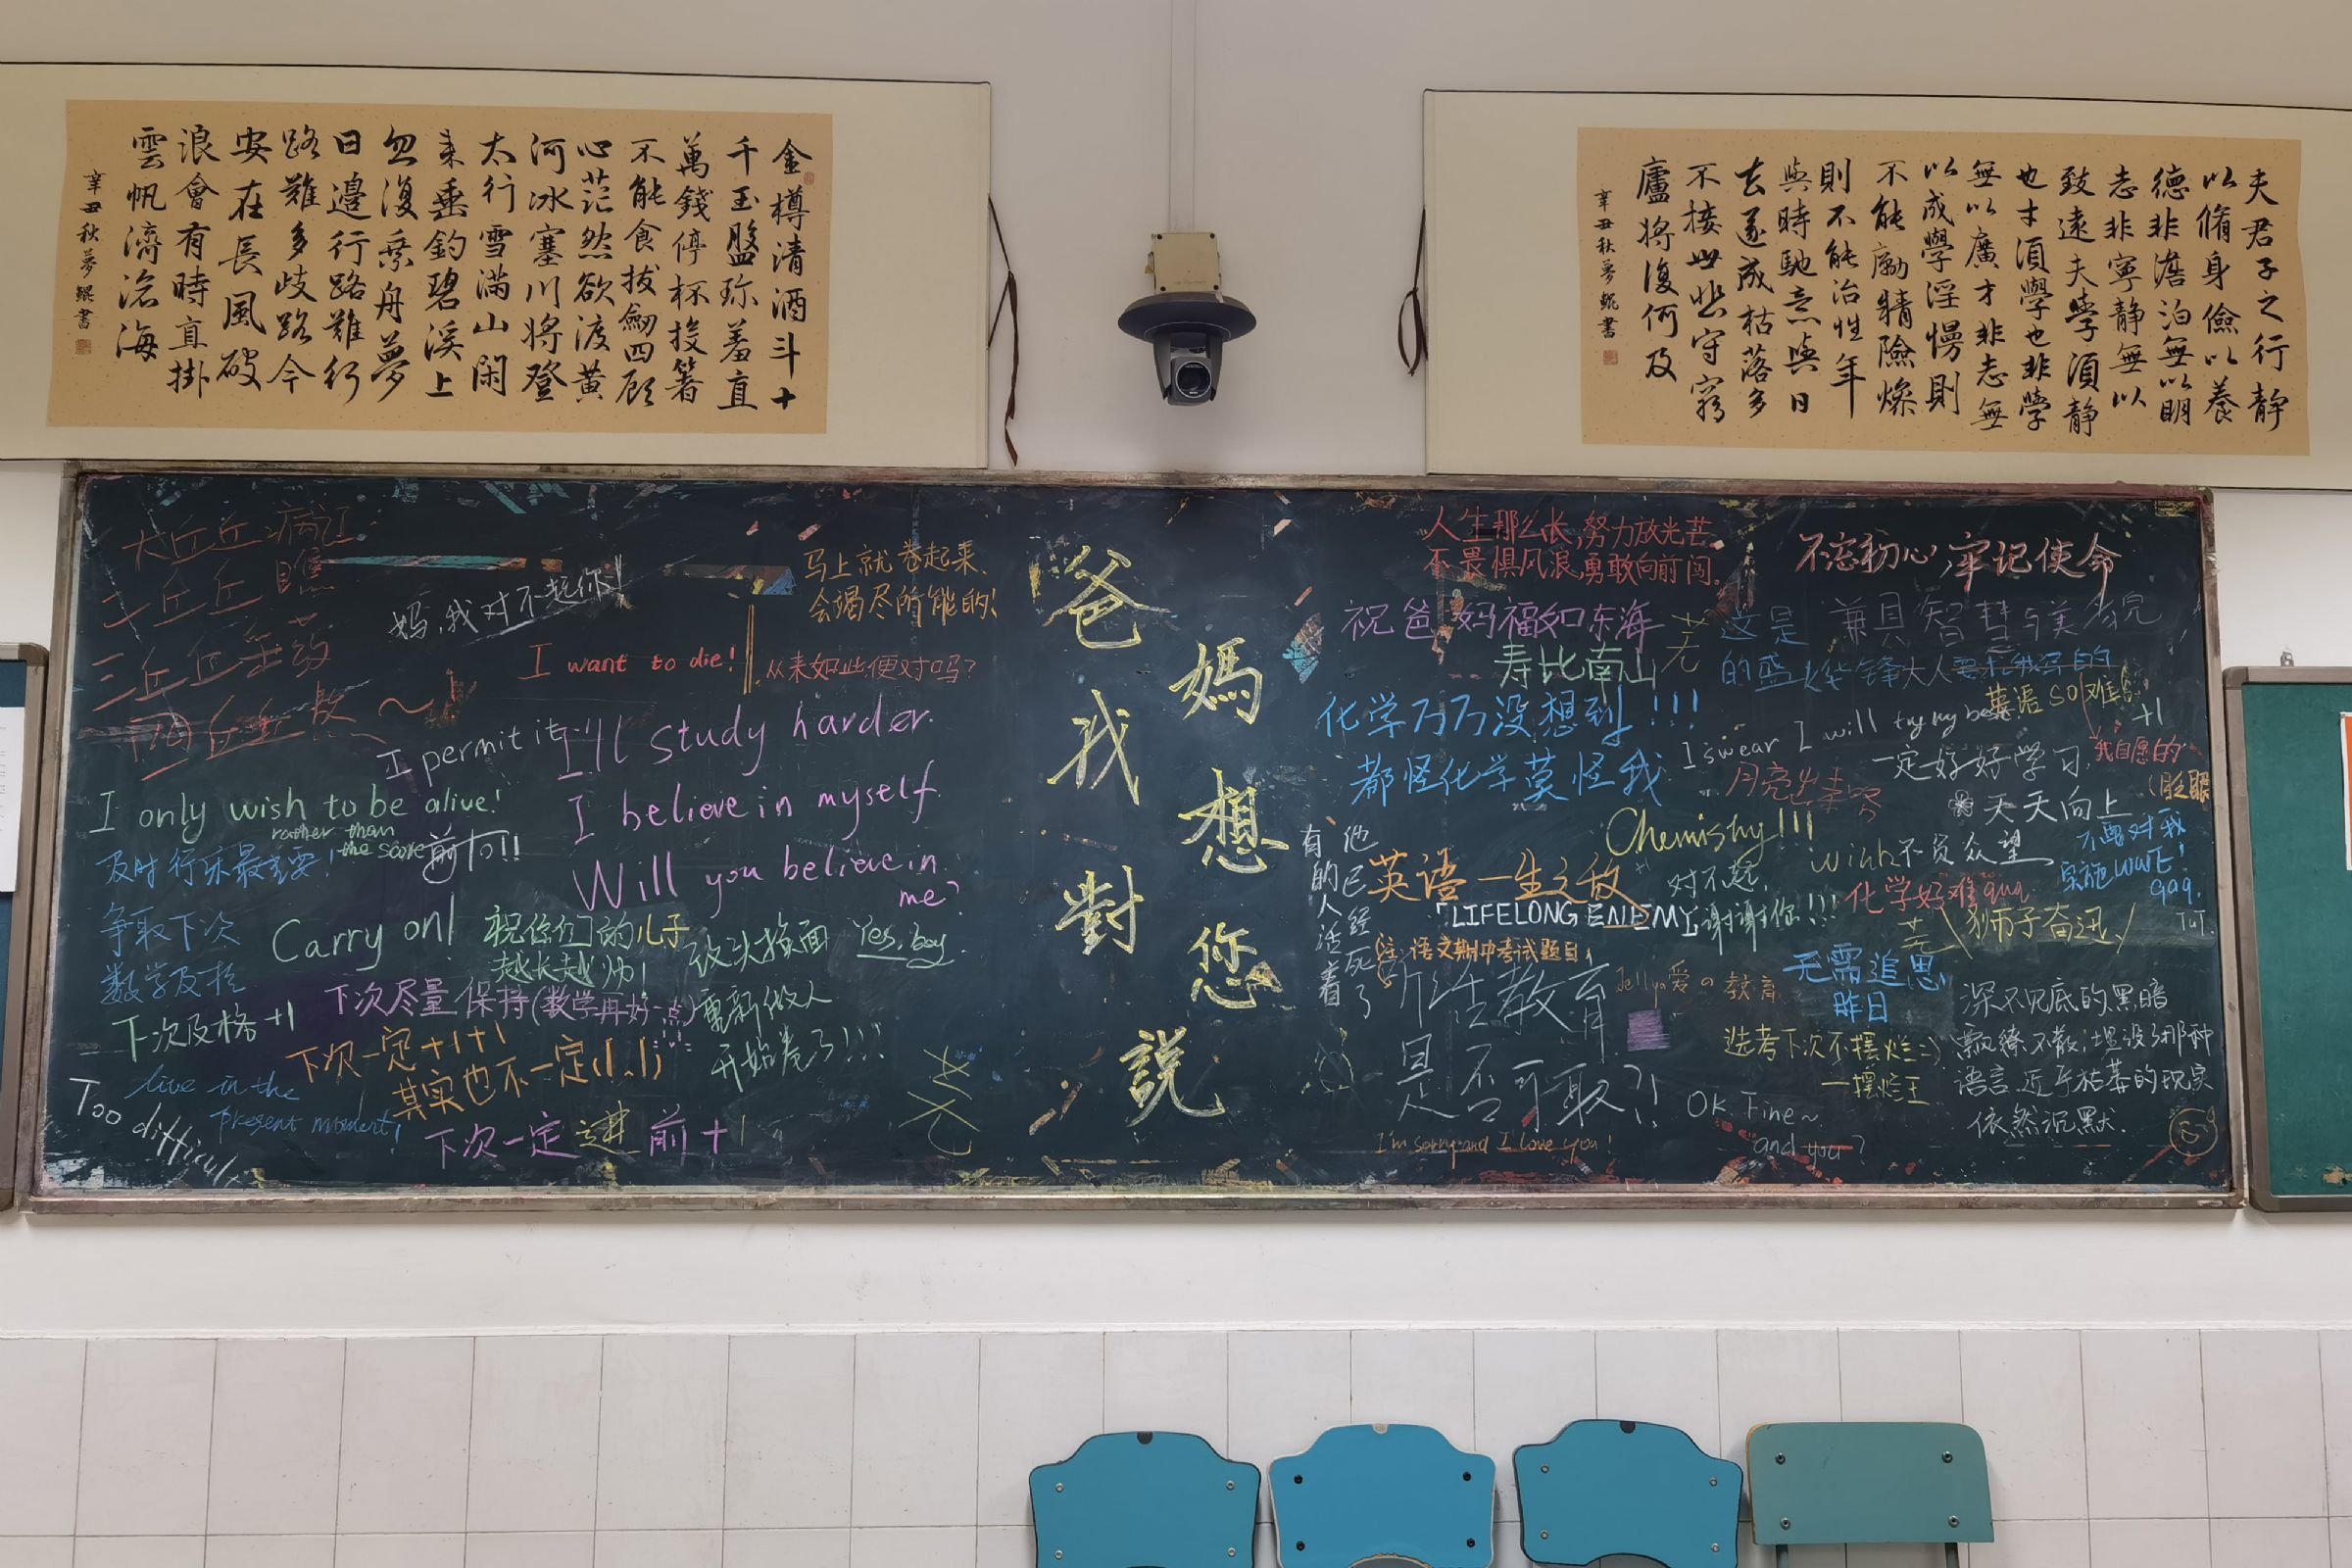 金樽清酒斗十
千玉盤珎羞直
萬錢停杯投箸
不能食拔劒四顾
心茫然欲渡黄
河冰塞川将登
太行雪满山闲
来垂釣碧溪上
忽復乘舟夢
日邉行路難行
路難多歧路今
安在長風破
浪會有時直掛
雲帆濟滄海
辛丑秋夢鲲書
夫君子之行静
以脩身儉以養
德非澹泊無以明
志非寧静無以
致遠夫學須静
也才須學也非學
無以廣才非志無
以成學淫慢則
不能勵精險燥
則不能治性年
與時馳意與日
去遂成枯落多
不接世悲守窮
廬将復何及
辛丑秋夢鲲書
爸
媽
我
想
對
您
説
大丘丘病江
二丘丘瞧
三丘丘
四丘丘
妈,我对不起你!
马上就卷起来、
会竭尽所能的!
I want to die!
从来如此,便对吗?
I permit it
I'll study harder.
I believe in myself.
Will you believe in
me?
I only wish to be alive!
rather than
the score
前10!!
及时行乐最主要!
争取下次
数学及格
Carry on!
祝你们的儿子
越长越帅!
改头换面
重新做人
开始卷了!!!
Yes, boy
下次及格+1
下次尽量保持(数学再好一点)
下次一定+1+1
其实也不一定
live in the
Present moment!
Too difficult
下次一定进前十
人生那么长,努力放光芒。
不畏惧风浪,勇敢向前闯。
不忘初心,牢记使命
祝爸妈福如东海
寿比南山
芜
这是兼具智慧与美貌
的盛烨锋大人要求我写的
英语so难
+1
化学万万没想到!!!
都怪化学莫怪我
I swear I will try my best
一定好好学习,
天天向上
我自愿的
(眨眼
月亮出来
Chemistry!!!
有的人活着
他已经死了
英语一生之敌
+1
「LIFELONG ENEMY」
对不起,
谢谢你!!!
wink
不负众望
化学好难quq
不要对我
实施WWE!
qaq.
TuT.
注:语文期中考试题目
所生教育
是否可取?!
Jelly。爱の教育
芜
狮子奋迅
无需追思
昨日
选考下次不摆烂
一摆烂王
深不见底的黑暗
飘缭不散,埋没了那种
语言,近乎枯萎的现实
依然沉默.
OK Fine~
and you?
I'm sorry and I love you!